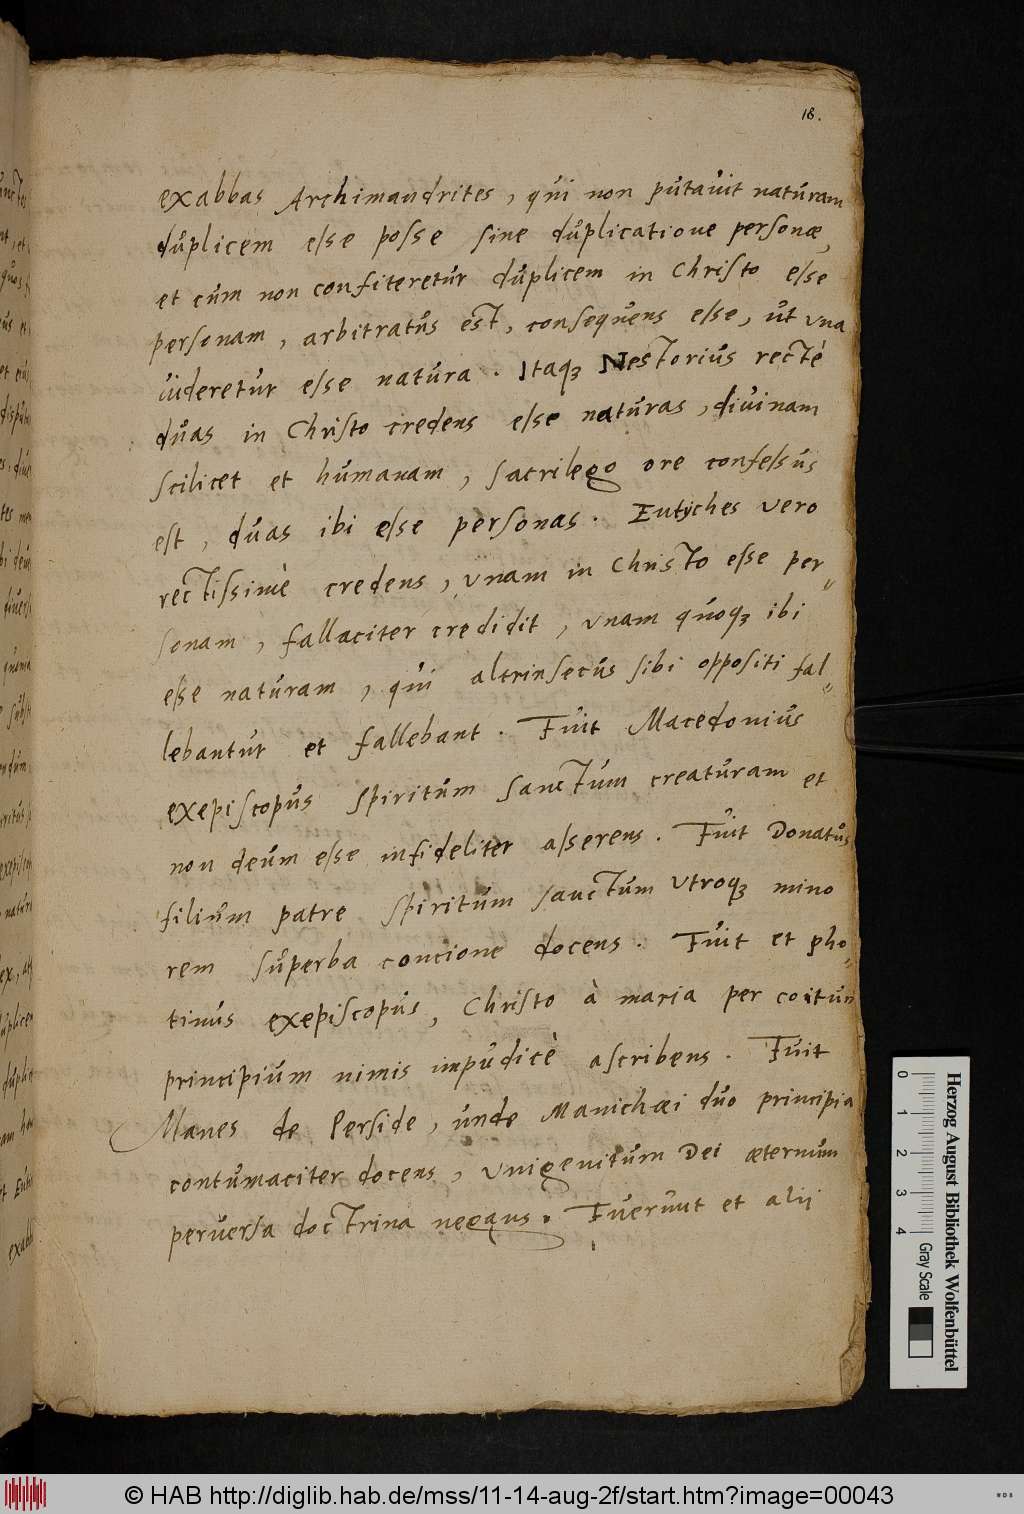 18.
exabbas Archimandrites, qui non putauit naturam
duplicem esse posse sine duplicatione personæ,
et cum non confiteretur duplicem in Christo esse
personam, arbitratus est, consequens esse, ut vna
uideretur esse natura. Itaqꝫ Nestorius rectè
duas in Christo credens esse naturas, diuinam
scilicet et humanam, sacrilego ore confessus
est, duas ibi esse personas. Eutyches vero
rectissimè credens, vnam in Christo esse per„
sonam, fallaciter credidit, vnam quoqꝫ ibi
esse naturam, qui altrinsecus sibi oppositi fal„
lebantur et fallebant. Fuit Macedonius
exepiscopus spiritum sanctum creaturam et
non deum esse infideliter asserens. Fuit Donatus
filium patre spiritum sanctum vtroqꝫ mino
rem superba concione docens. Fuit et pho„
tinus exepiscopus, Christo à maria per coitum
principium nimis impudicè ascribens. Fuit
Manes de Perside, unde Manichæi duo principia
contumaciter docens, vnigenitum Dei æternum
peruersa doctrina negans. Fuerunt et alij
Herzog August Bibliothek Wolfenbüttel
0 1 2 3 4 Gray Scale
© HAB http://diglib.hab.de/mss/11-14-aug-2f/start.htm?image=00043